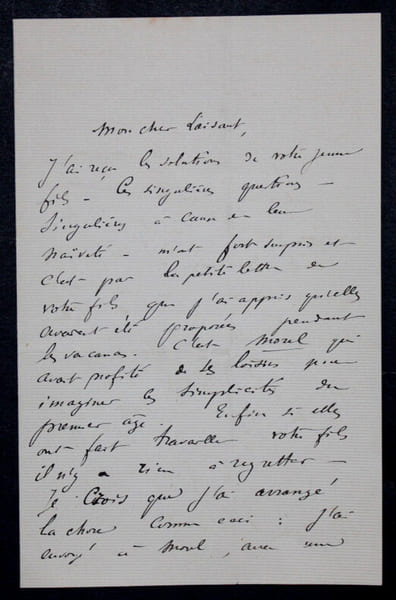 Mon cher Laisant,
J'ai reçu les solutions de votre jeune
fils - Ces singulières questions -
singulières à cause de leur
naïveté - m'ont fort surpris et
c'est par la petite lettre de
votre fils que j'ai appris qu'elles
avaient été proposées pendant
les vacances. C'est Morel qui
avait profité de ses loisirs pour
imaginer les simplicités du
premier âge. Enfin si elles
ont fait travailler votre fils
il n'y a rien à regretter -
Je crois que j'ai arrangé
la chose comme ceci : j'ai
envoyé à Morel, avec une